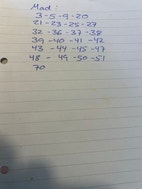 Mad:
3-5-9-20
21-23-25-27
32-36-37-38
39-40-41-42
43-44-45-47
48-49-50-51
70